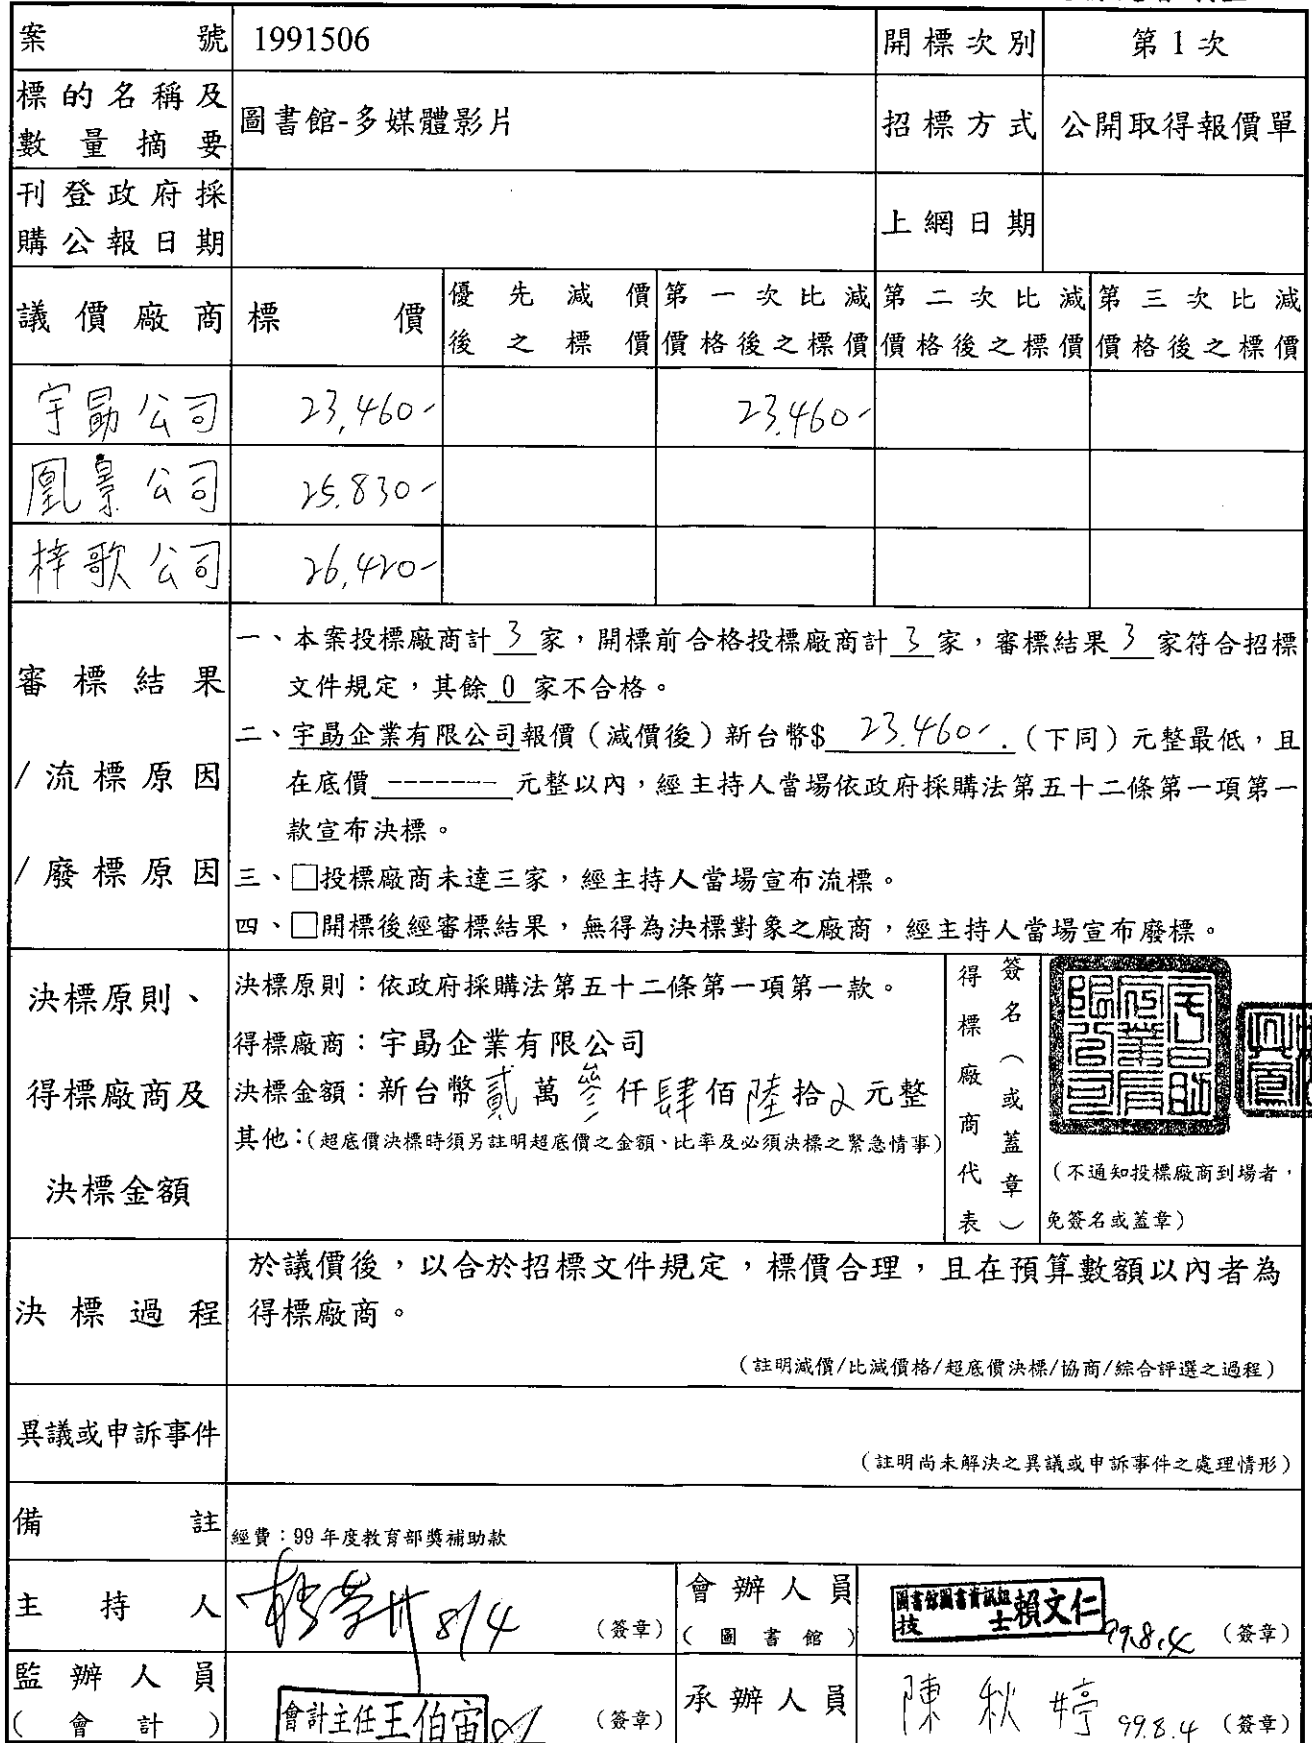 案號 1991506 開標次別 第1次
標的名稱及數量摘要 圖書館-多媒體影片 招標方式 公開取得報價單
刊登政府採購公報日期 上網日期
議價廠商 標價 優先減價後之標價 第一次比減價格後之標價 第二次比減價格後之標價 第三次比減價格後之標價
宇勗公司 23,460- 23,460-
凰景公司 25,830-
梓歌公司 26,420-
審標結果/流標原因/廢標原因
一、本案投標廠商計 3 家，開標前合格投標廠商計 3 家，審標結果 3 家符合招標
文件規定，其餘 0 家不合格。
二、宇勗企業有限公司報價（減價後）新台幣$ 23,460-.（下同）元整最低，且
在底價 ------- 元整以內，經主持人當場依政府採購法第五十二條第一項第一
款宣布決標。
三、□投標廠商未達三家，經主持人當場宣布流標。
四、□開標後經審標結果，無得為決標對象之廠商，經主持人當場宣布廢標。
決標原則、得標廠商及決標金額
決標原則：依政府採購法第五十二條第一項第一款。
得標廠商：宇勗企業有限公司
決標金額：新台幣貳萬參仟肆佰陸拾元整
其他：(超底價決標時須另註明超底價之金額、比率及必須決標之緊急情事)
得標廠商代表
簽名（或蓋章）
（不通知投標廠商到場者，
免簽名或蓋章）
決標過程
於議價後，以合於招標文件規定，標價合理，且在預算數額以內者為
得標廠商。
（註明減價/比減價格/超底價決標/協商/綜合評選之過程）
異議或申訴事件
（註明尚未解決之異議或申訴事件之處理情形）
備註
經費：99 年度教育部獎補助款
主持人 8/4 （簽章）
會辦人員（圖書館） 圖書館圖書資訊組技士賴文仁 99.8.4 （簽章）
監辦人員（會計） 會計主任王伯宙 （簽章）
承辦人員 陳秋婷 99.8.4 （簽章）